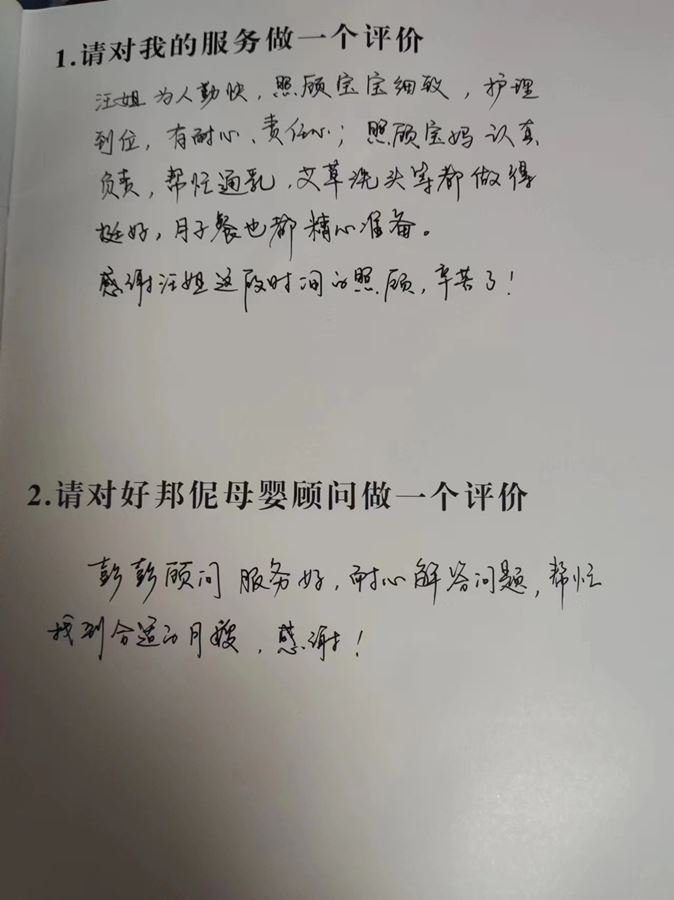 1.请对我的服务做一个评价
汪姐为人勤快，照顾宝宝细致，护理
到位，有耐心、责任心；照顾宝妈认真
负责，帮忙通乳、艾草洗头等都做得
挺好，月子餐也都精心准备。
感谢汪姐这段时间的照顾，辛苦了！
2.请对好邦伲母婴顾问做一个评价
彭彭顾问服务好，耐心解答问题，帮忙
找到合适的月嫂，感谢！